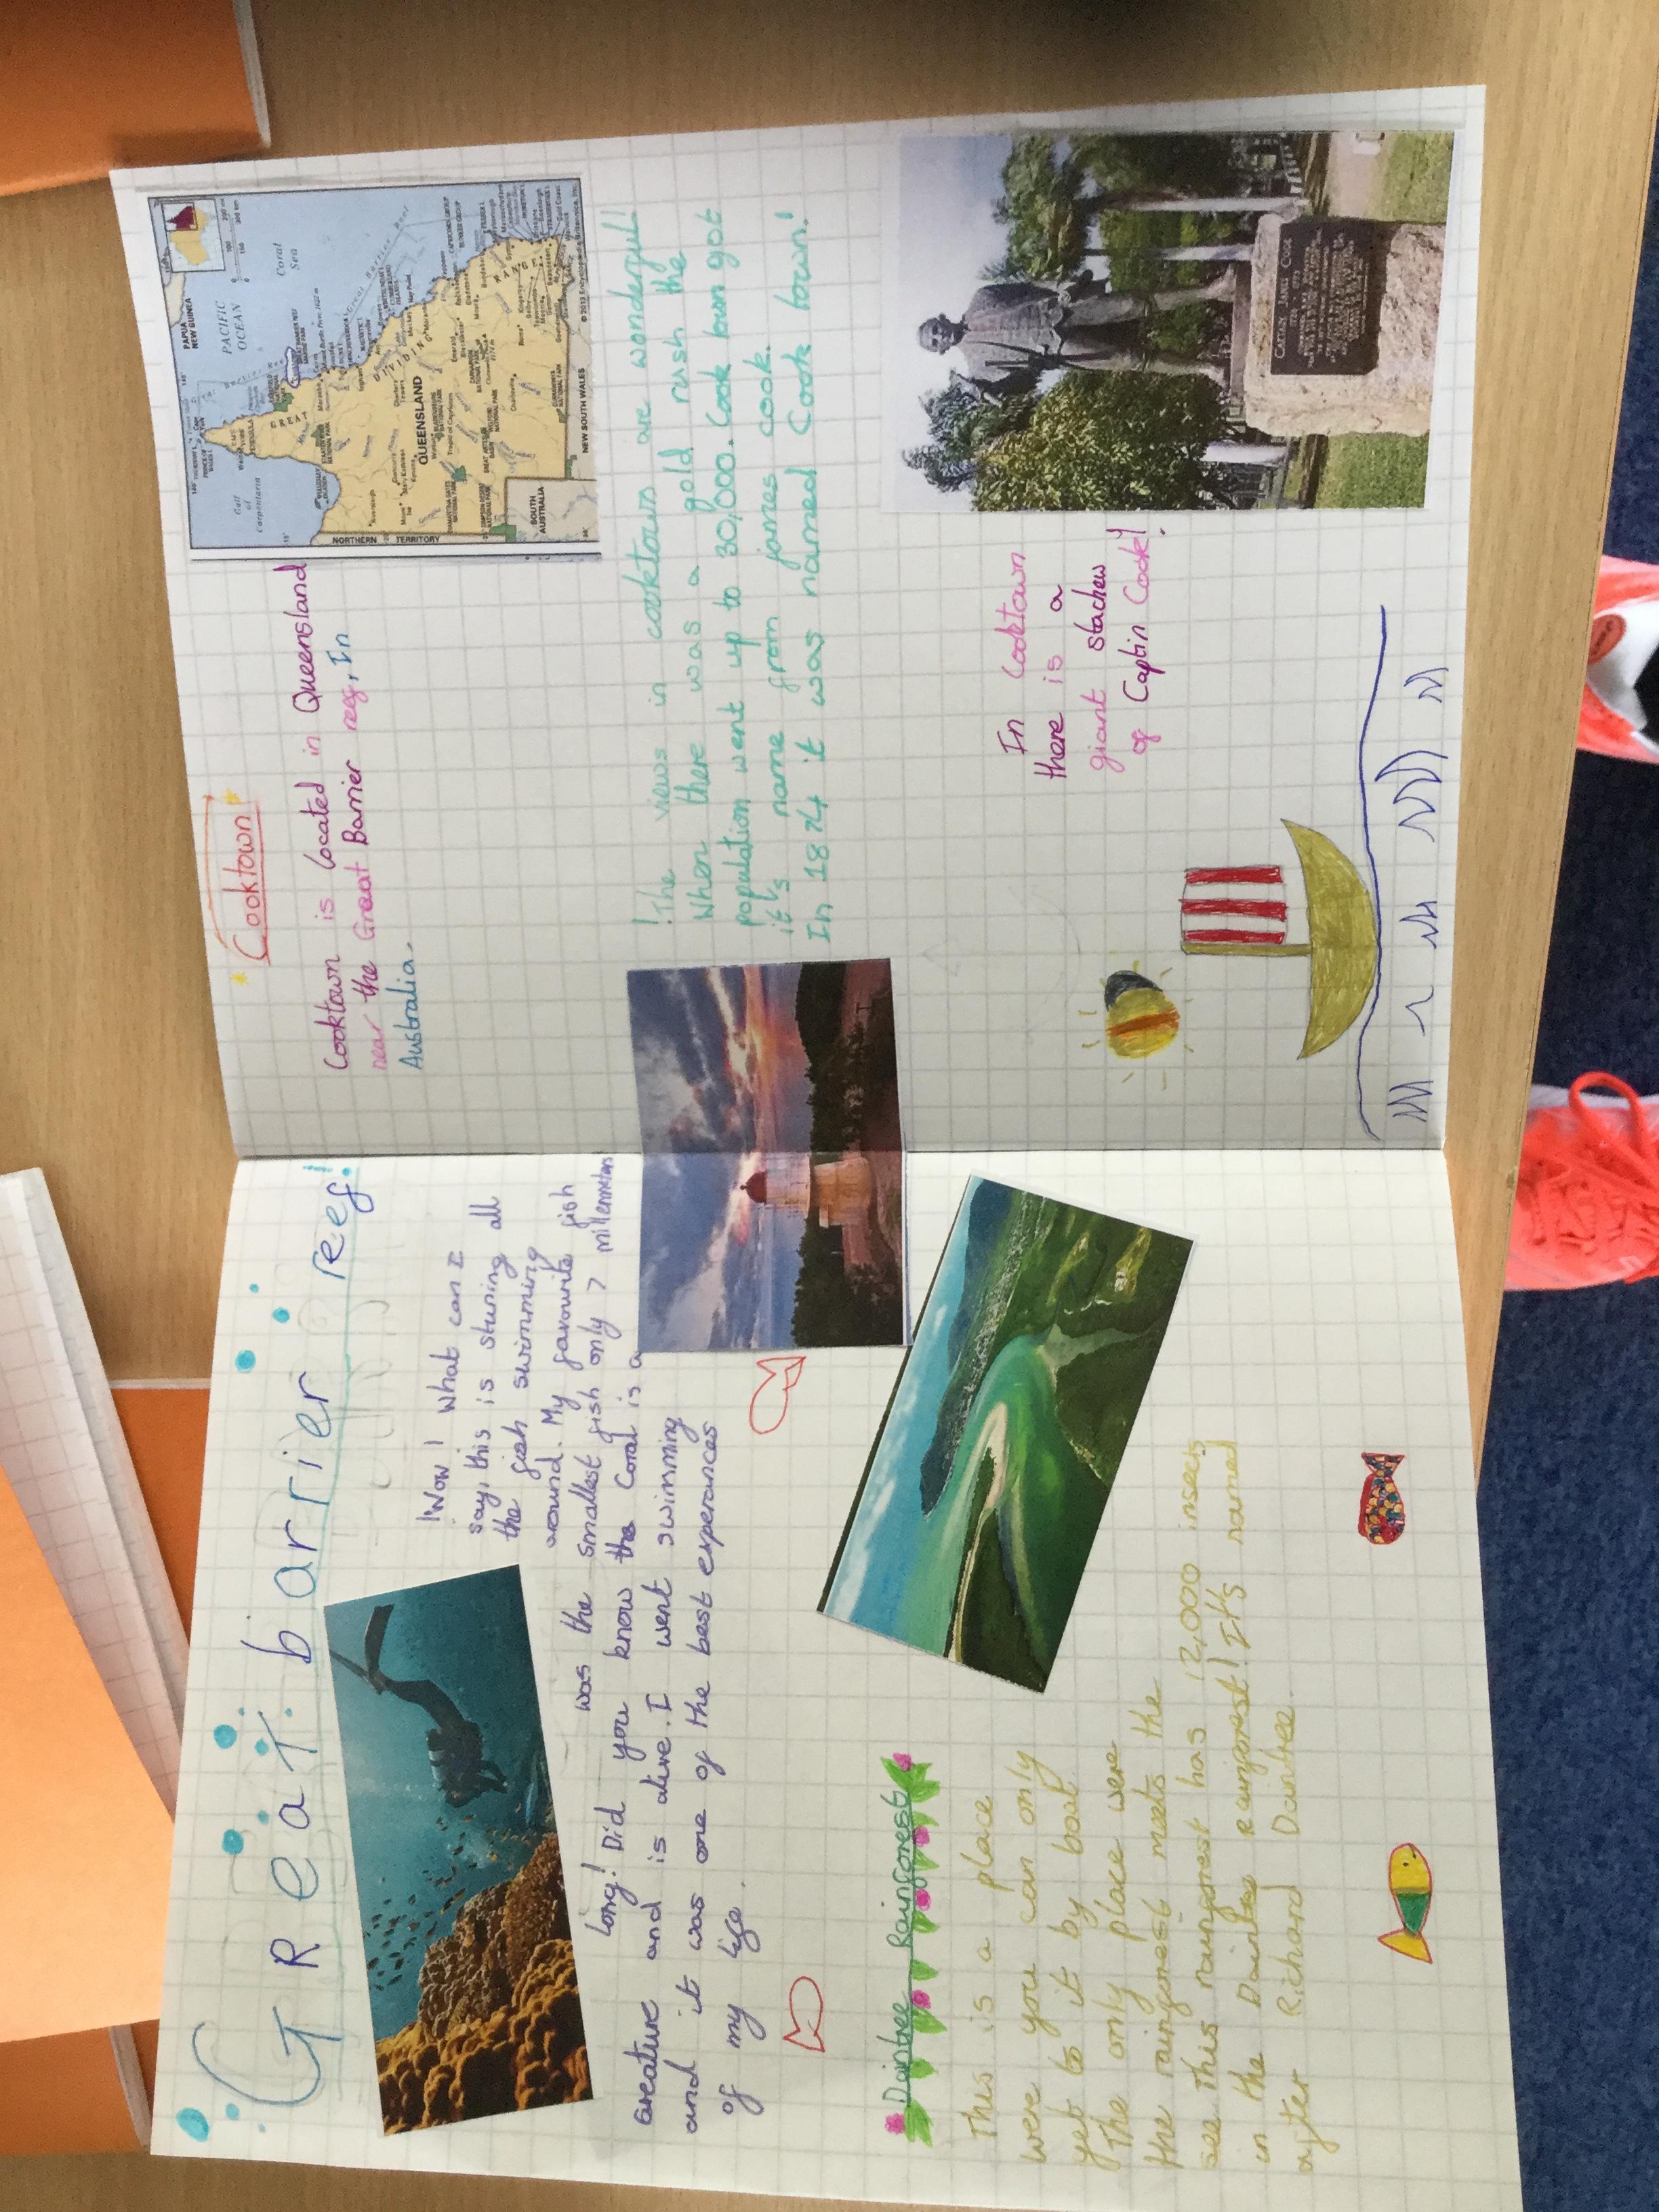 Great barrier reef!
!Wow! What can I
say, this is stuning all
the fish swimming
around. My favourite fish
was the smallest fish only 7 millemetars
long! Did you know the Coral is a
creature and is alive. I went swimming
and it was one of the best experances
of my life.
Daintree Rainforest
This is a place
were you can only
get to it by boat
The only place were
the rainforest meets the
see this rainforest has 12,000 insects
in the Daintree Rainforest! It's named
after Richard Daintree.
Cooktown
Cooktown is located in Queensland
near the Great Barrier reef. In
Australia.
PAPUA
NEW GUINEA
PACIFIC
OCEAN
Coral
Sea
Gulf
of
Carpentaria
Great Barrier Reef
GREAT
DIVIDING
RANGE
QUEENSLAND
NORTHERN TERRITORY
SOUTH
AUSTRALIA
NEW SOUTH WALES
!The views in cooktown are wonderful!
When there was a gold rush the
population went up to 30,000. Cook town got
it's name from james cook.
In 1874 it was named Cook town!
In Cooktown
there is a
giant stachew
of Captin Cook!
CAPTAIN JAMES COOK